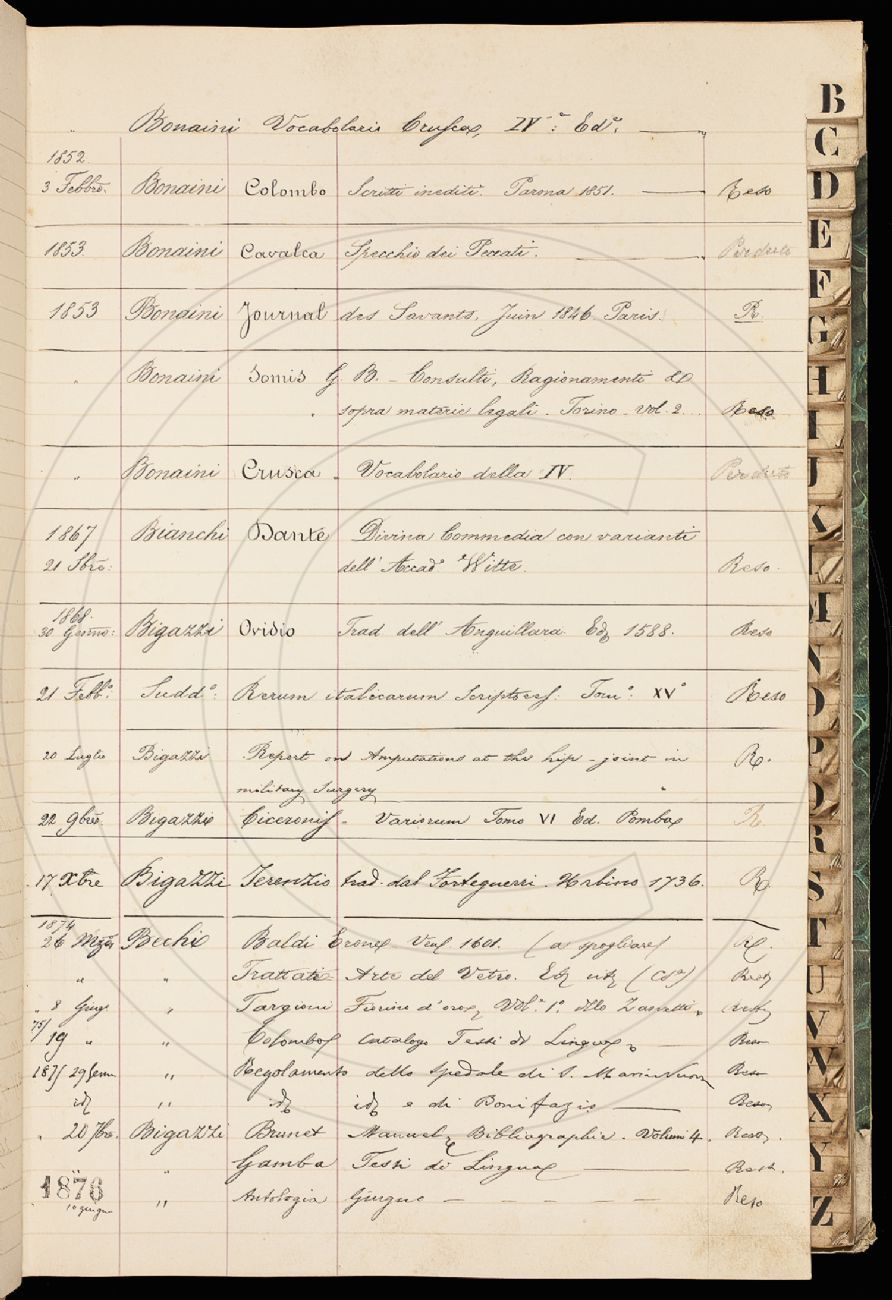 " Bonaini Vocabolario Crusca, IVa: Eda.
1852.
3 Febbro. Bonaini Colombo Scritti inediti. Parma 1851. Reso
1853. Bonaini Cavalca Specchio dei Peccati. Perduto
1853 Bonaini Journal des Savants. Juin 1846 Paris. R.
" Bonaini Somis G. B. - Consulti, Ragionamenti &
sopra materie legali. Torino. vol. 2. Reso
" Bonaini Crusca - Vocabolario della IV. Perduto
1867 Bianchi Dante Divina Commedia con varianti
21 8bre: dell' Accado Witte. Reso.
1868.
30 Genno: Bigazzi Ovidio Trad dell' Anguillara. Ed 1588. Reso
21 Febbo. Suddo: Rerum italicarum Scriptores: Tomo: XVo Reso
20 Luglio Bigazzi Report on Amputations at the hip-joint in R.
military Surgery
22 9bre. Bigazzi Ciceronis - Variorum Tomo VI Ed. Pomba R.
17 Xbre Bigazzi Terenzio trad. dal Forteguerri. Urbino 1736. R.
1874
26 Bechi Baldi Erone Ven. 1601. (a spogliare) R.
" " Trattati Arte del Vetro.
" 8 Giug. " Targioni Vol. 1o.
75/
19 " " Colombo Catalogo Testi di Lingua
1875 29 Genn. " Regolamento dello Spedale di S. Maria Nuova Reso
id " id id e di Bonifazio Reso
" 20 Bigazzi Brunet Manuel Bibliographie. Volumi 4. Reso.
" " Gamba Testi di Lingua
1876
10 giugno " Antologia Giugno Reso
B
C
D
E
F
G
H
I
J
K
L
M
N
O
P
Q
R
S
T
U
V
W
X
Y
Z